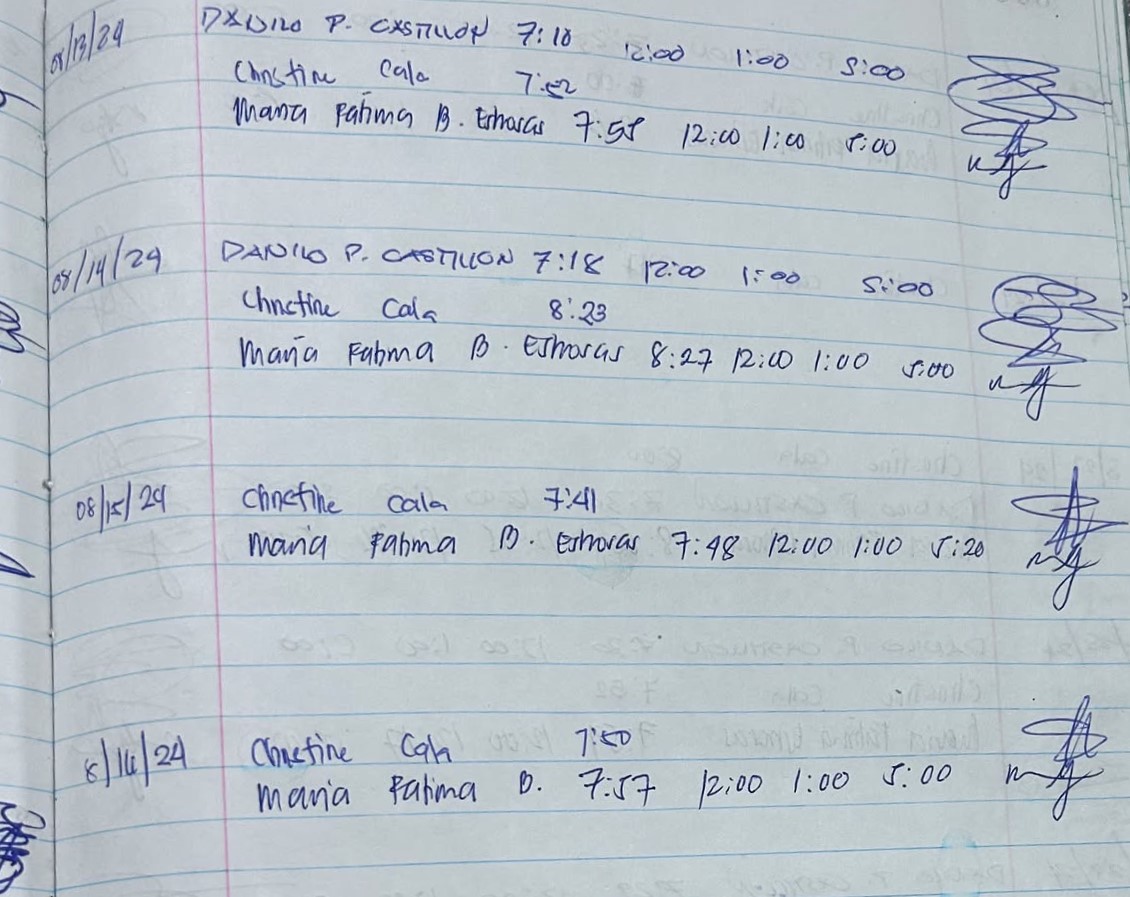 08/13/24 DANILO P. CASTILLON 7:18 12:00 1:00 5:00
Christine Cala 7:52
Maria Fatima B. Eshoras 7:58 12:00 1:00 5:00
08/14/24 DANILO P. CASTILLON 7:18 12:00 1:00 5:00
Christine Cala 8:23
Maria Fatima B. Eshoras 8:27 12:00 1:00 5:00
08/15/24 Christine Cala 7:41
Maria Fatima B. Eshoras 7:48 12:00 1:00 5:20
8/16/24 Christine Cala 7:50
Maria Fatima B. 7:57 12:00 1:00 5:00